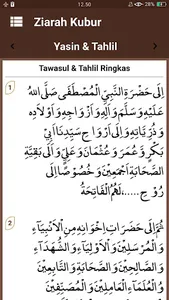 12.50
Ziarah Kubur
Yasin & Tahlil
Tawasul & Tahlil Ringkas
1
اِلَى حَضْرَةِ النَّبِيِّ الْمُصْطَفَى صَلَّى اللهُ
عَلَيْهِ وَسَلَّمَ وَاٰلِهِ وَاَزْوَاجِهِ وَاَوْلَادِهِ
وَذُرِّيَّاتِهِ وَاِلَى اَرْوَاحِ سَيِّدِنَا اَبِيْ
بَكْرٍ وَعُمَرَ وَعُثْمَانَ وَعَلِيٍّ وَاِلَى بَقِيَّةِ
الصَّحَابَةِ اَجْمَعِيْنَ وَخُصُوْصًا اِلَى
رُوْحِ ...... لَهُمُ الْفَاتِحَةُ
2
ثُمَّ اِلَى حَضَرَاتِ اِخْوَانِهِ مِنَ الْاَنْبِيَاءِ
وَالْمُرْسَلِيْنَ وَالْاَوْلِيَاءِ وَالشُّهَدَاءِ
وَالصَّالِحِيْنَ وَالصَّحَابَةِ وَالتَّابِعِيْنَ
وَالْعُلَمَاءِ الْعَامِلِيْنَ وَالْمُصَنِّفِيْنَ